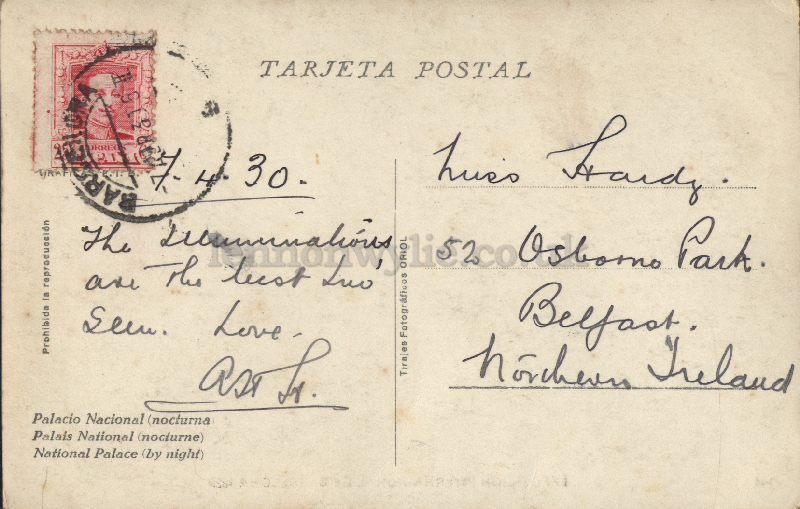 TARJETA POSTAL
CORREOS
BARCELONA
7.4.30.
The Illuminations
are the best I've
seen. Love.
Miss Hardy.
52 Osborne Park.
Belfast.
Northern Ireland
Prohibida la reproducción
Tirajes Fotográficos ORIOL
lennonwylie.co.uk
Palacio Nacional (nocturna)
Palais National (nocturne)
National Palace (by night)